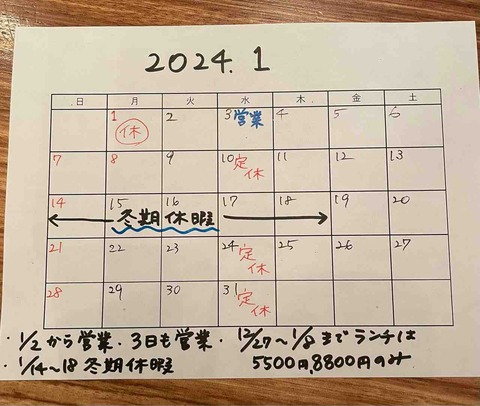 2024.1
日 月 火 水 木 金 土
1 休 2 3 営業 4 5 6
7 8 9 10 定休 11 12 13
14 15 16 17 18 19 20
冬期休暇
21 22 23 24 定休 25 26 27
28 29 30 31 定休
・1/2から営業・3日も営業・12/27〜1/8までランチは
5500円,8800円のみ
・1/14〜18 冬期休暇